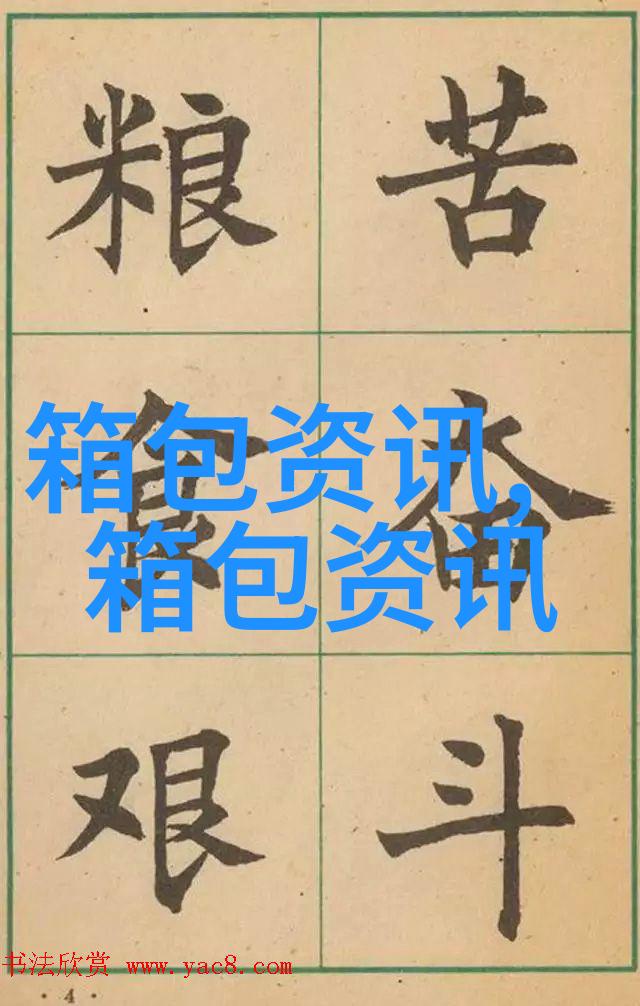 粮 苦
食 奋
艰 斗
箱包资讯,
箱包资讯
书法欣赏 www.yac8.com
· 4 ·